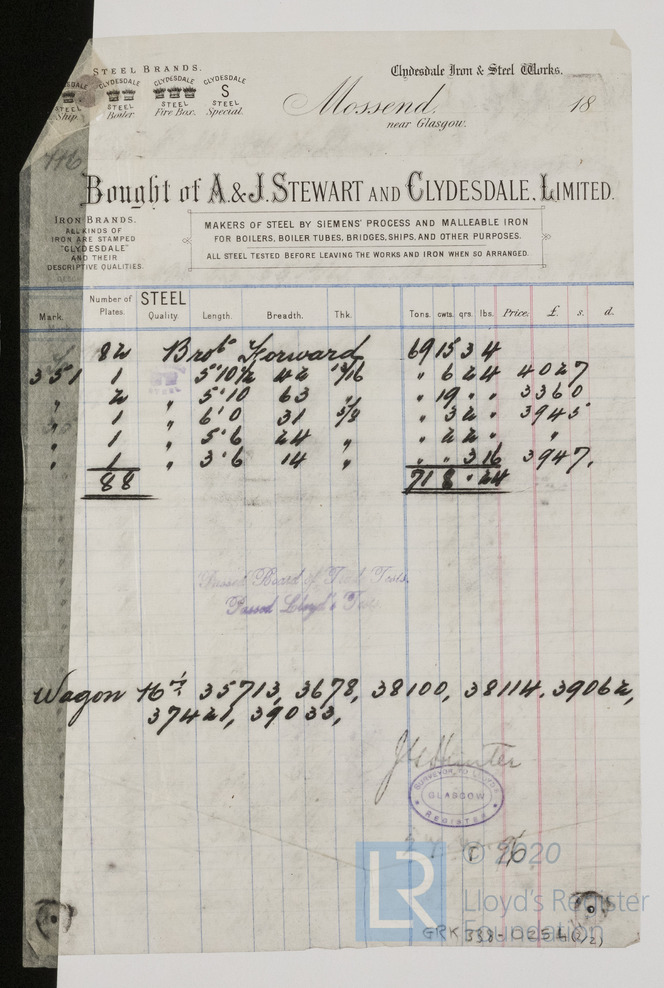 STEEL BRANDS.
CLYDESDALE CLYDESDALE CLYDESDALE
STEEL STEEL STEEL S STEEL
Ship. Boiler. Fire Box. Special.
Clydesdale Iron & Steel Works.
Mossend, 18
near Glasgow.
Bought of A. & J. STEWART AND CLYDESDALE, LIMITED.
IRON BRANDS.
ALL KINDS OF
IRON ARE STAMPED
"CLYDESDALE"
AND THEIR
DESCRIPTIVE QUALITIES.
MAKERS OF STEEL BY SIEMENS' PROCESS AND MALLEABLE IRON
FOR BOILERS, BOILER TUBES, BRIDGES, SHIPS, AND OTHER PURPOSES.
ALL STEEL TESTED BEFORE LEAVING THE WORKS AND IRON WHEN SO ARRANGED.
Mark. Number of Plates. STEEL Quality. Length. Breadth. Thk. Tons. cwts. qrs. lbs. Price. £. s. d.
82 Brot Forward 69 15 3 4
351 1 5'10½ 42 13/16 " 6 2 4 4027
" 2 " 5'10 63 " " 19 " " 3360
" 1 " 6'0 31 5/8 " 3 2 " 3945
" 1 " 5'6 24 " " 2 2 " "
" 1 " 3'6 14 " " " 3 16 3947.
88 71 8 " 24
Passed Board of Trade Tests.
Passed Lloyd's Tests.
Wagon 35713, 3678, 38100, 38114, 39062,
37421, 39033,
Hunter
SURVEYOR TO LLOYD'S
GLASGOW
REGISTER
96
LR © 2020
Lloyd's Register
Foundation